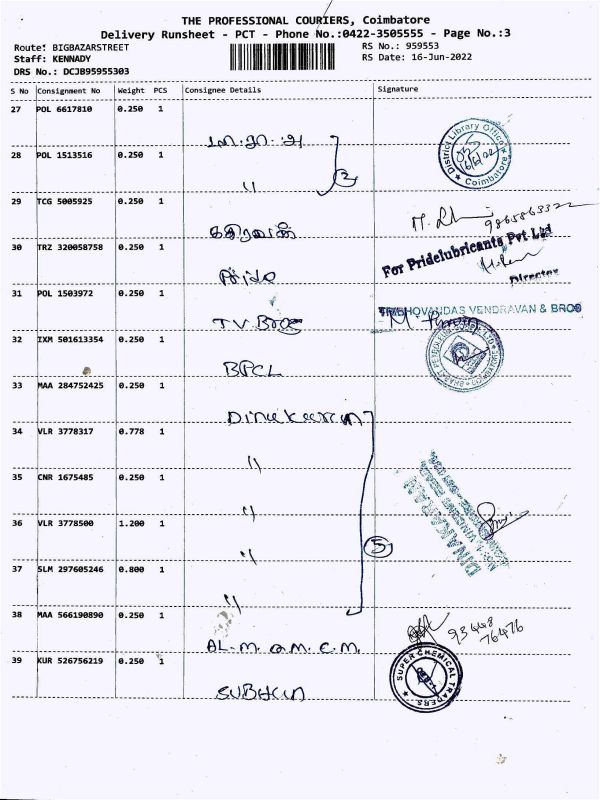 THE PROFESSIONAL COURIERS, Coimbatore
Delivery Runsheet - PCT - Phone No.:0422-3505555 - Page No.:3
Route: BIGBAZARSTREET
RS No.: 959553
Staff: KENNADY
RS Date: 16-Jun-2022
DRS No.: DCJB95955303
S No Consignment No Weight PCS Consignee Details Signature
27 POL 6617810 0.250 1
28 POL 1513516 0.250 1
" 2
District Library Office
16/6/22
Coimbatore
29 TCG 5005925 0.250 1
9865863322
30 TRZ 320058758 0.250 1
Pride
For Pridelubricants Pvt Ltd
Director
31 POL 1503972 0.250 1
T.V. Bros
TRIBHOVANDAS VENDRAVAN & BROS
32 IXM 501613354 0.250 1
BPCL
33 MAA 284752425 0.250 1
Dinakaran
34 VLR 3778317 0.778 1
"
35 CNR 1675485 0.250 1
"
DINAKARAN
36 VLR 3778500 1.200 1
"
5
37 SLM 297605246 0.800 1
"
38 MAA 566190890 0.250 1
93448
76476
39 KUR 526756219 0.250 1
SUPER CHEMICAL TRADERS